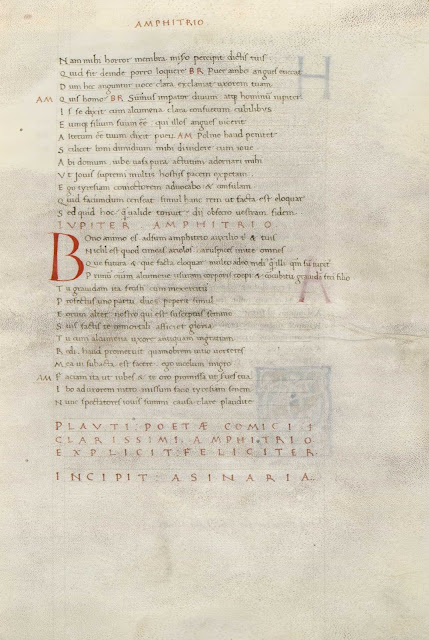 AMPHITRIO
Nam mihi horror membra misero percipit dictis tuis
Quid fit deinde porro loquere BR Puer ambo angues enecat
Dum hec aguntur uoce clara exclamat uxorem tuam
AM Quis homo BR Sūmus īmpator diuum atq; hominū iupiter
Is se dixit cum alcumena clam consuetum cubilibus
Eumq; filium suum eē qui illos angues uicerit
Alterum eē tuum dixit puerū AM Pol me haud penitet
Scilicet boni dimidium mihi diuidere cum ioue
Abi domum iube uasa pura actutum adornari mihi
Ut Iouis supremi multis hostiis pacem expetam
Ego tyresiam coniectorem aduocabo & consulam
Quid faciundum censeat simul hanc rem ut facta est eloquar
Sed quid hoc q̄ ualide tonuit dii obsecro uestram fidem
IUPITER AMPHITRIO
Bono animo es adsum amphitrio auxilio t & tuis
Nichil est quod timeas ariolos aruspices mitte omnes
Que futura & que facta eloquar multo adeo
Primū oīum alcumene usuram corporis cepi & filio
Tu grauidam ita fecisti cum in exercitū
Profectus uno partu duos peperit simul
Eorum alter nostro qui est susceptus semine
Suis factis te immortali afficiet gloria
Tu cum alcumena uxore antiquam in gratiam
Redi haud promeruit quamobrem uitio uerteres
Mea ui subacta est facere ego in celum migro
AM Faciam ita ut iubes & te oro promissa ut serues tua
Ibo ad uxorem intro missum facio tyresiam senem
Nunc spectatores iouis summi causa clare plaudite
PLAVTI: POETÆ COMICI
CLARISSIMI AMPHITRIO
EXPLICIT: FELICITER.
INCIPIT: ASINARIA.